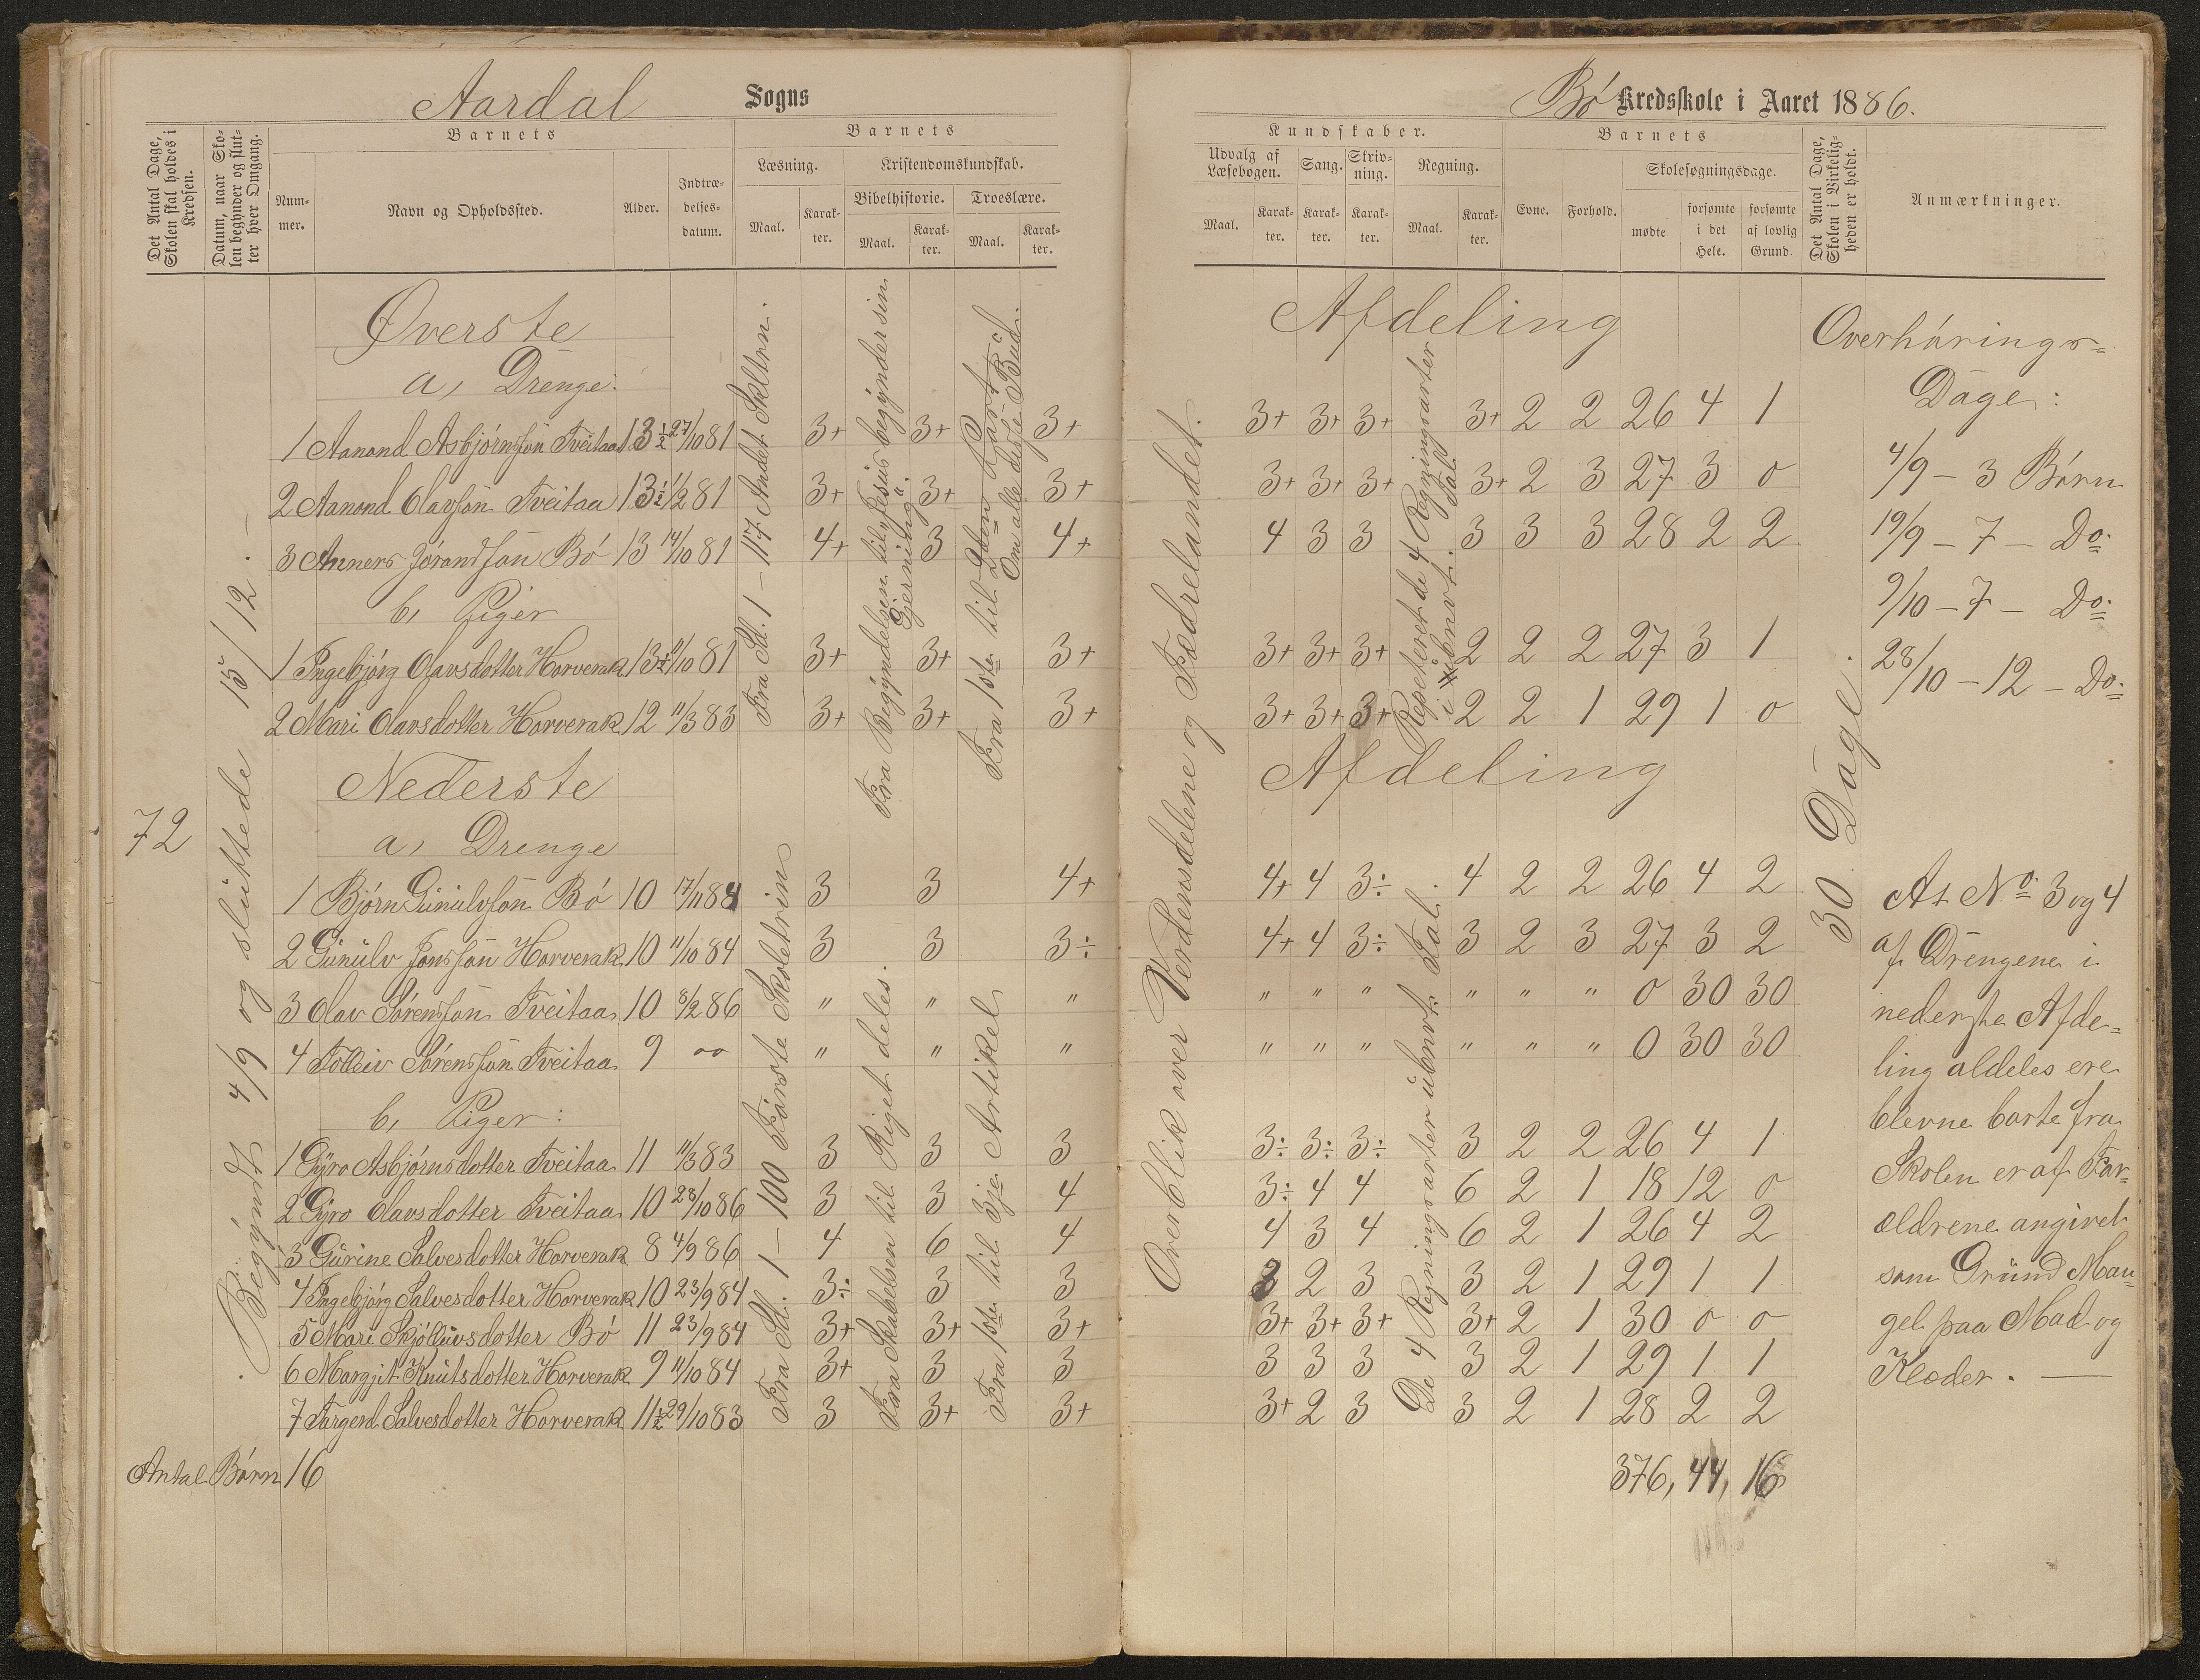 Aardal Sogns
Det Antal Dage, Skolen skal holdes i Kredsen.
Datum, naar Skolen begynder og slutter hver Omgang.
Barnets
Nummer.
Navn og Opholdssted.
Alder.
Indtrædelsesdatum.
Barnets
Læsning.
Maal.
Karakter.
Kristendomskundskab.
Bibelhistorie.
Maal.
Karakter.
Troeslære.
Maal.
Karakter.
72
Begyndt 4/9 og sluttede 15/12.
Øverste
a, Drenge:
1 Aanond Asbjørnssøn Tveitaa 13½ 27/10 81 3+ 3+ 3+
2 Aanond Olavssøn Tveitaa 13½ 1/2 81 3+ 3+ 3+
3 Anners Jørandssøn Bø 13 14/10 81 4+ 3 4+
b, Piger
1 Ingebjørg Olavsdotter Horverak 13½ 11/10 81 3+ 3+ 3+
2 Mari Olavsdotter Horverak 12 11/3 83 3+ 3+ 3+
Fra Sd. 1 – 117 Andet Skltrn.
Fra Begyndelsen til Jesus begynder sin Gjerning.
Fra 1ste til 2den Part
Om alle disse Bud.
Nederste
a, Drenge
1 Bjørn Gunulvsøn Bø 10 17/11 84 3 3 4+
2 Gunulv Jonssøn Horverak 10 11/10 84 3 3 3÷
3 Olav Sørenssøn Tveitaa 10 8/2 86 " " "
4 Tolleiv Sørenssøn Tveitaa 9 oo " " "
b, Piger:
1 Gyro Asbjørnsdotter Tveitaa 11 11/3 83 3 3 3
2 Gyro Olavsdotter Tveitaa 10 28/10 86 3 3 4
3 Gurine Salvesdotter Horverak 8 4/9 86 4 6 4
4 Ingebjørg Salvesdotter Horverak 10 23/9 84 3÷ 3 3
5 Mari Skjølluvsdotter Bø 11 23/9 84 3+ 3+ 3+
6 Margjit Knutsdotter Horverak 9 11/10 84 3+ 3 3
7 Torgerd Salvesdotter Horverak 11½ 29/10 83 3 3+ 3+
Fra Sd. 1 – 100 Første Skoletrin
Fra Skabelsen til Riget deles.
Fra 1ste til 3je Artikel
Antal Børn 16
Bø Kredsskole i Aaret 1886.
Kundskaber.
Udvalg af Læsebogen.
Maal.
Karakter.
Sang.
Karakter.
Skrivning.
Karakter.
Regning.
Maal.
Karakter.
Barnets
Evne.
Forhold.
Skolesøgningsdage.
mødte
forsømte i det Hele.
forsømte af lovlig Grund.
Det Antal Dage, Skolen i Virkeligheden er holdt.
Anmærkninger.
Overblik over Verdensdelene og Fædrelandet.
Afdeling
3+ 3+ 3+ 3+ 2 2 26 4 1
3+ 3+ 3+ 3+ 2 3 27 3 0
4 3 3 3 3 3 28 2 2
3+ 3+ 3+ 2 2 2 27 3 1
3+ 3+ 3+ 2 2 1 29 1 0
Repeteret de 4 Regningsarter i ubnvt. Tal
Afdeling
4+ 4 3÷ 4 2 2 26 4 2
4+ 4 3÷ 3 2 3 27 3 2
" " " " " " 0 30 30
" " " " " " 0 30 30
3÷ 3÷ 3÷ 3 2 2 26 4 1
3÷ 4 4 6 2 1 18 12 0
4 3 4 6 2 1 26 4 2
3 2 3 3 2 1 29 1 1
3+ 3+ 3+ 3+ 2 1 30 0 0
3 3 3 3 2 1 29 1 1
3+ 2 3 3 2 1 28 2 2
De 4 Regningsarter i ubnvt. Tal.
376, 44, 16
30 Dage.
Overhørings-
Dage:
4/9 – 3 Børn
19/9 – 7 – Do.
9/10 – 7 – Do.
28/10 – 12 – Do.
At No. 3 og 4
af Drengene i
nederste Afde-
ling aldeles ere
blevne borte fra
Skolen er af For-
ældrene angivet
som Grund Man-
gel paa Mad og
Klæder. —